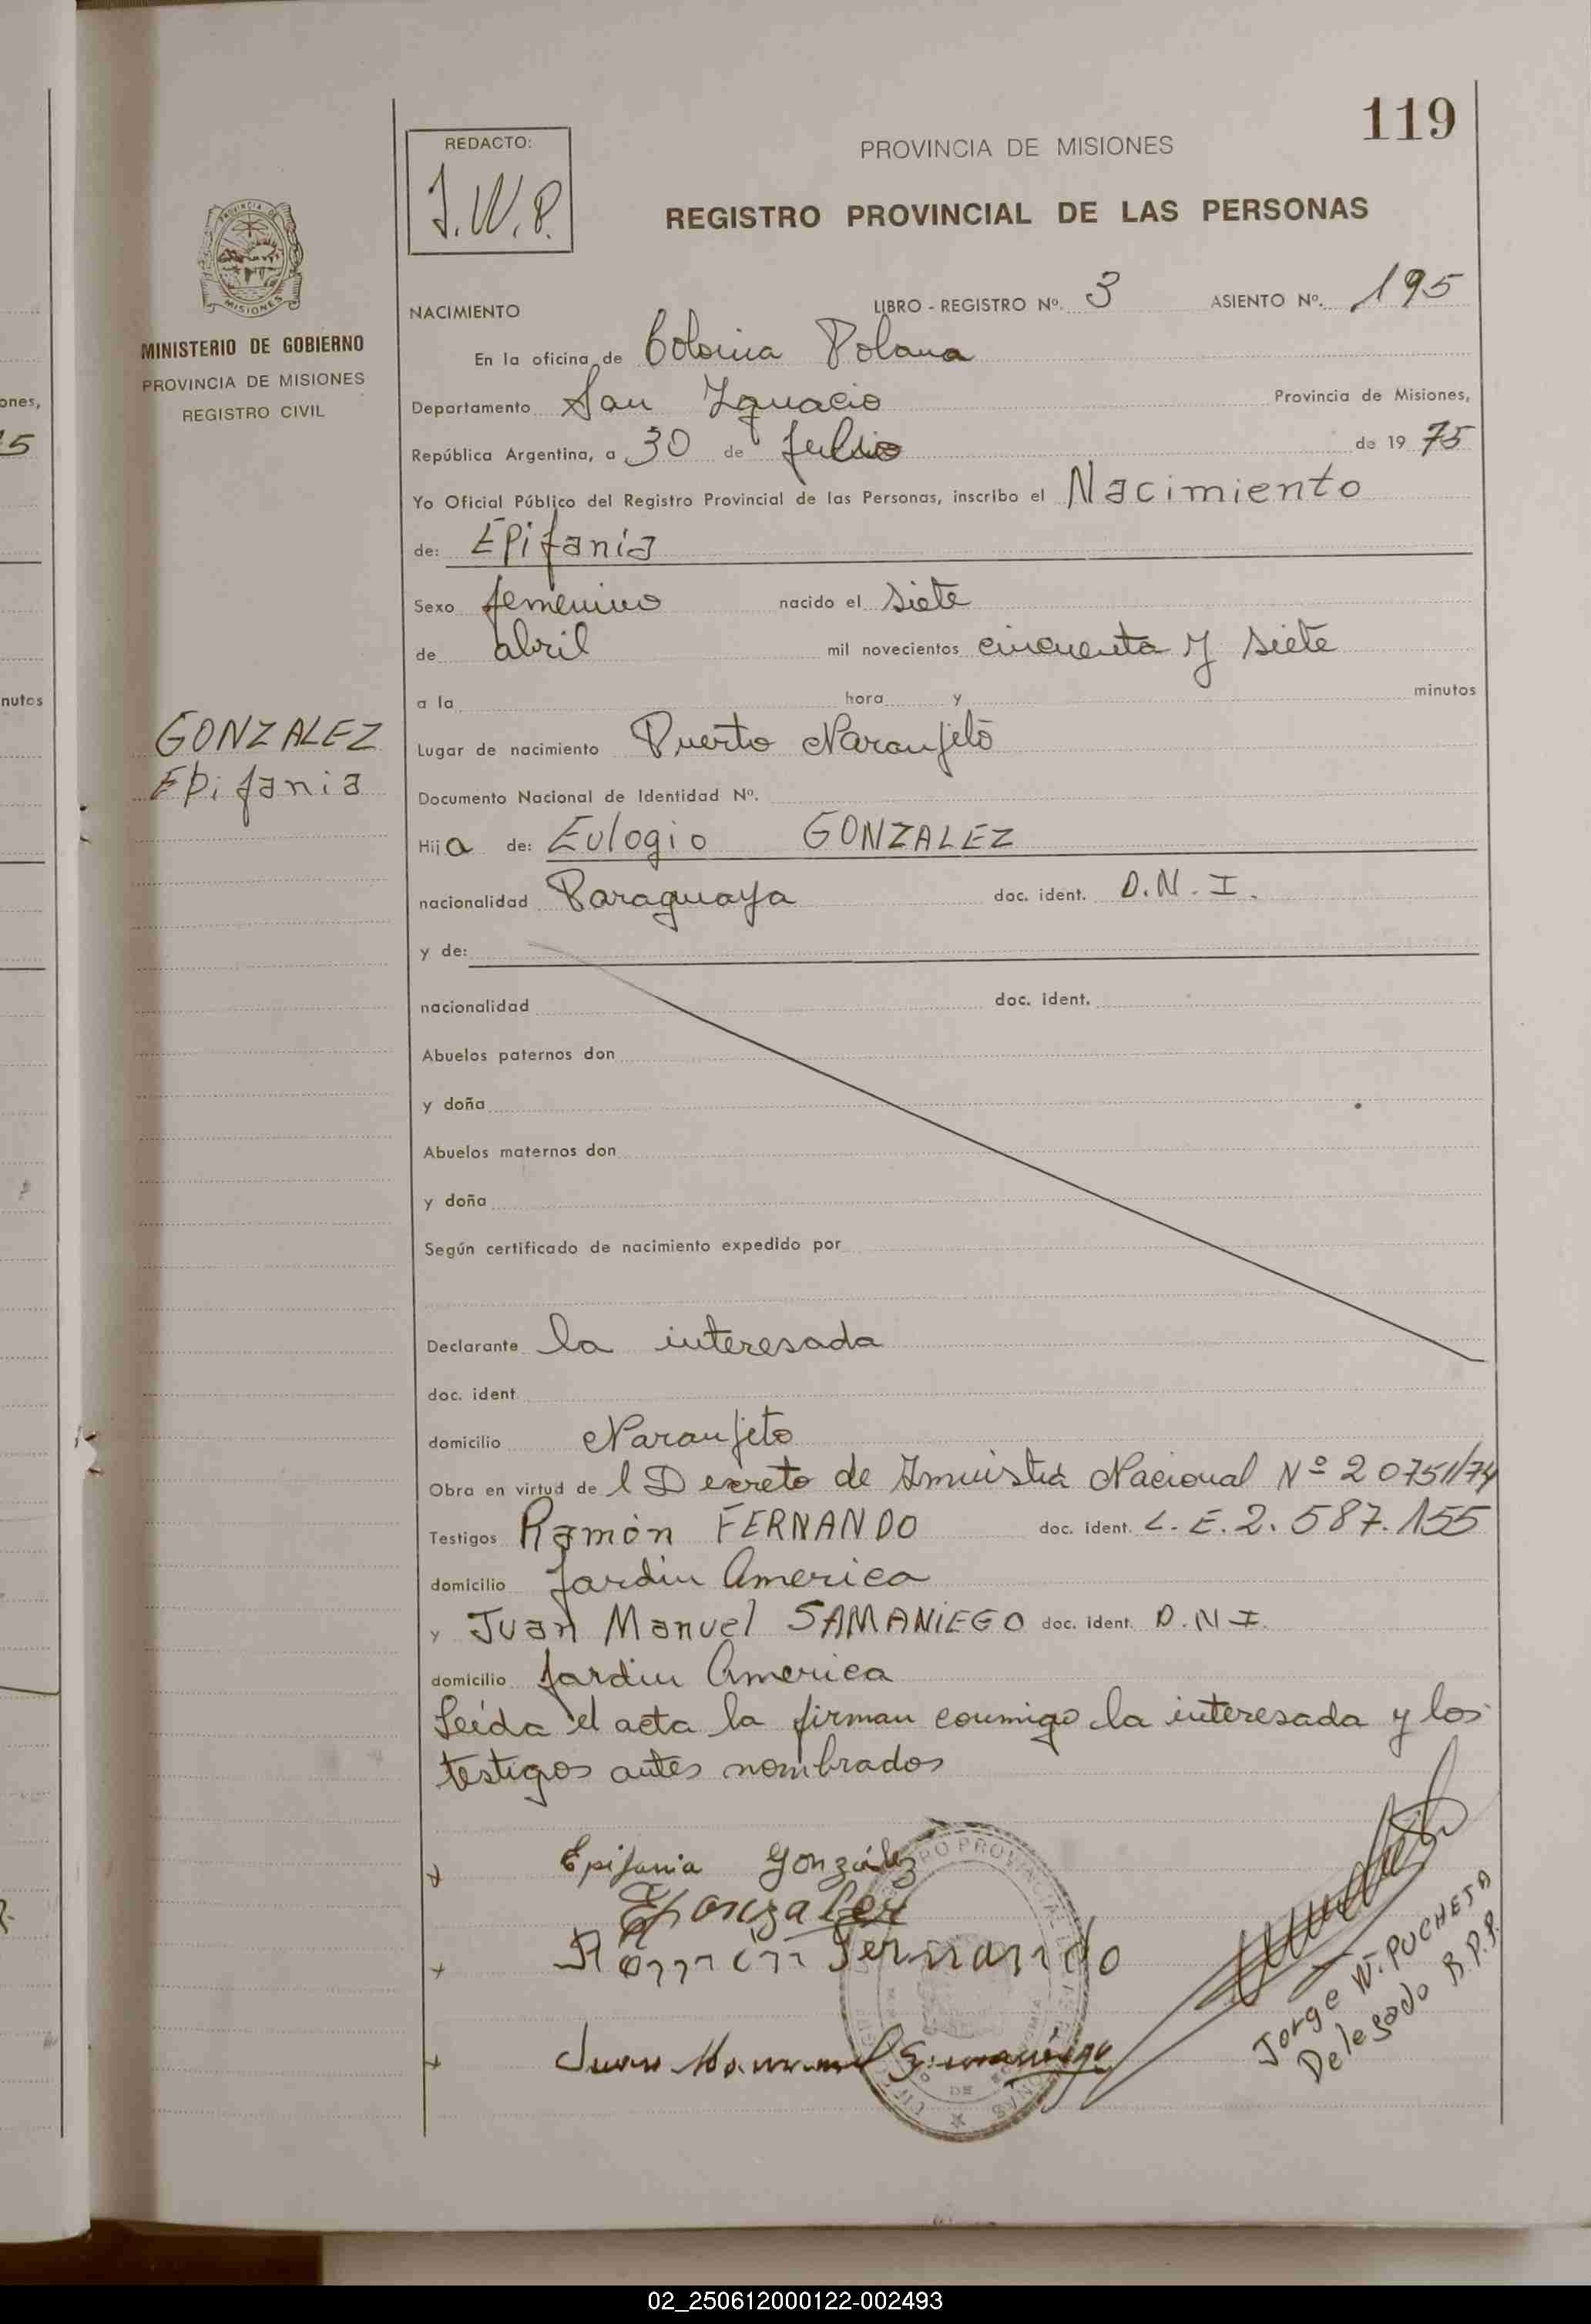 119
REDACTO:
J.W.P.
PROVINCIA DE MISIONES
REGISTRO PROVINCIAL DE LAS PERSONAS
MINISTERIO DE GOBIERNO
PROVINCIA DE MISIONES
REGISTRO CIVIL
NACIMIENTO LIBRO - REGISTRO Nº. 3 ASIENTO Nº. 195
En la oficina de Colonia Polana
Departamento San Ignacio Provincia de Misiones,
República Argentina, a 30 de Julio de 19 75
Yo Oficial Público del Registro Provincial de las Personas, inscribo el Nacimiento
de: Epifania
Sexo femenino nacido el siete
de abril mil novecientos cincuenta y siete
a la hora y minutos
GONZALEZ
Epifania
Lugar de nacimiento Puerto Naranjito
Documento Nacional de Identidad Nº.
Hija de: Eulogio GONZALEZ
nacionalidad Paraguaya doc. ident. D.N.I.
y de:
nacionalidad doc. ident.
Abuelos paternos don
y doña
Abuelos maternos don
y doña
Según certificado de nacimiento expedido por
Declarante la interesada
doc. ident
domicilio Naranjito
Obra en virtud de l Decreto de Amnistia Nacional Nº 20751/74
Testigos Ramón FERNANDO doc. ident. L.E. 2.587.155
domicilio Jardin America
y Juan Manuel SAMANIEGO doc. ident. D.N.I.
domicilio Jardin America
Leida el acta la firman conmigo la interesada y los
testigos antes nombrados
Epifania González
EGonzalez
Ramón Fernando
Juan Manuel Samaniego
Jorge W. PUCHETA
Delegado R.P.P.
ones,
nutos
02_250612000122-002493